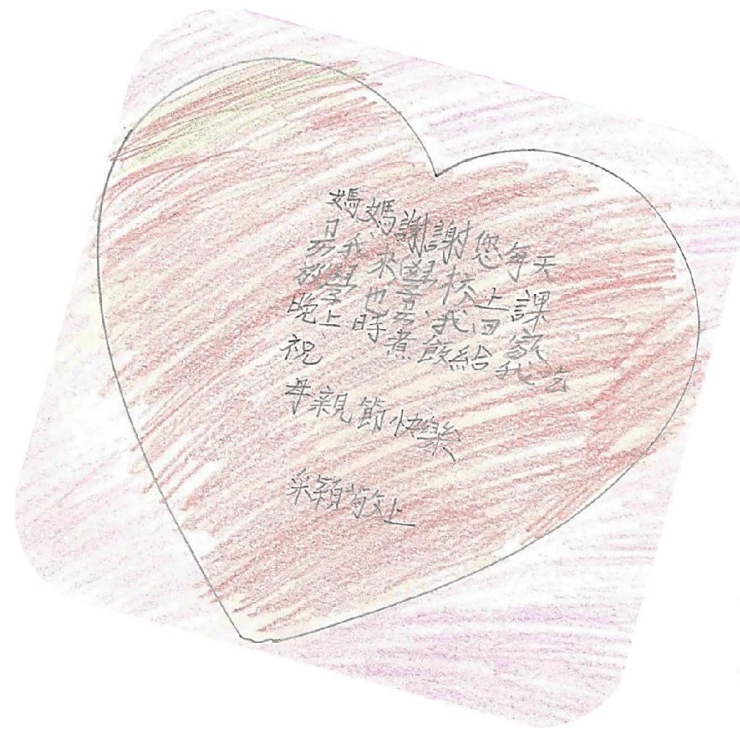 媽媽謝謝您每天
我來學校上課
放學也我回家
晚上時煮飯給我吃
祝
母親節快樂
采穎敬上